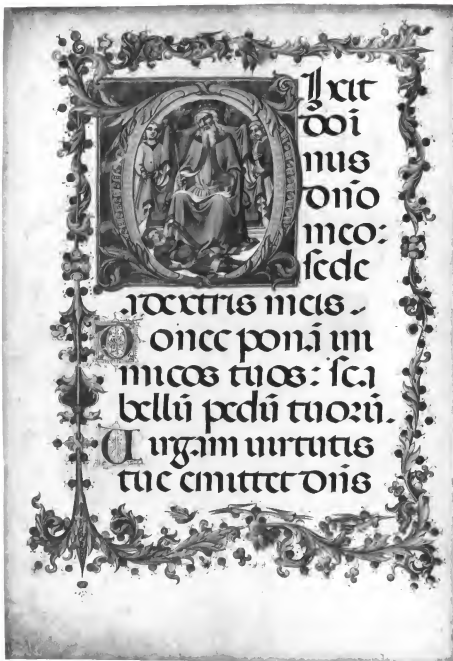 Dixit
doī
nus
dn̄o
meo:
sede
a dextris meis.
Donec ponā ini
micos tuos: sca
bellū pedū tuorū.
Uirgam uirtutis
tue emittet dn̄s